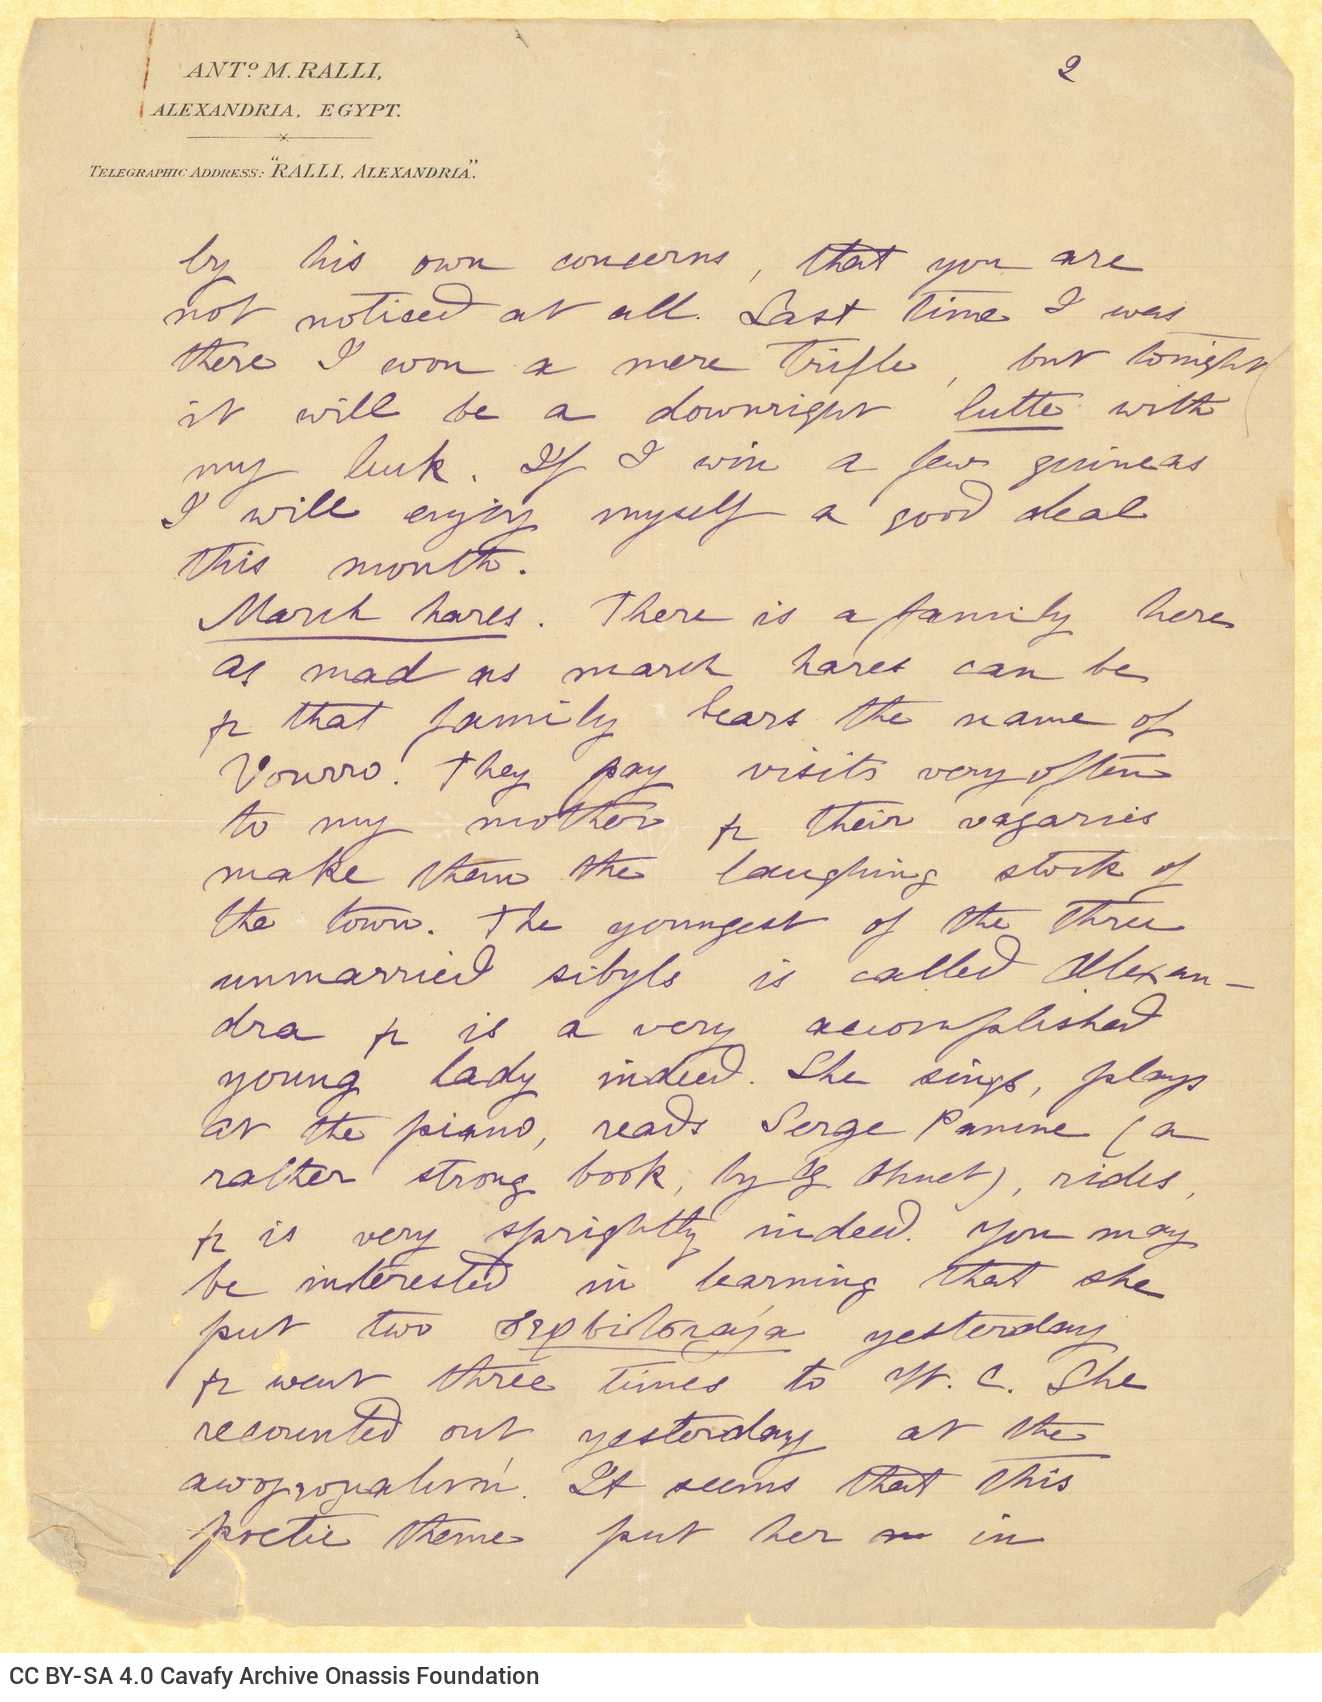 ANTº M. RALLI,
2
ALEXANDRIA, EGYPT.
TELEGRAPHIC ADDRESS: "RALLI, ALEXANDRIA".
by his own concerns, that you are
not noticed at all. Last time I was
there I won a mere trifle, but tonight
it will be a downright lutte with
my luck. If I win a few guineas
I will enjoy myself a good deal
this month.
March hares. There is a family here
as mad as march hares can be
& that family bears the name of
Vourro. They pay visits very often
to my mother & their vagaries
make them the laughing stock of
the town. The youngest of the three
unmarried sibyls is called Alexan-
dra & is a very accomplished
young lady indeed. She sings, plays
at the piano, reads Serge Panine (a
rather strong book, by G Ohnet), rides,
& is very sprightly indeed. You may
be interested in learning that she
put two yesterday
& went three times to W. C. She
recounted out yesterday at the
It seems that this
poetic theme put her in
CC BY-SA 4.0 Cavafy Archive Onassis Foundation